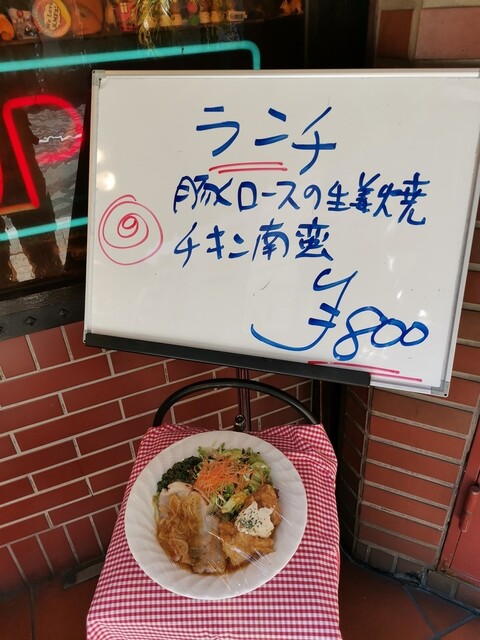 ランチ
豚ロースの生姜焼
チキン南蛮
¥800